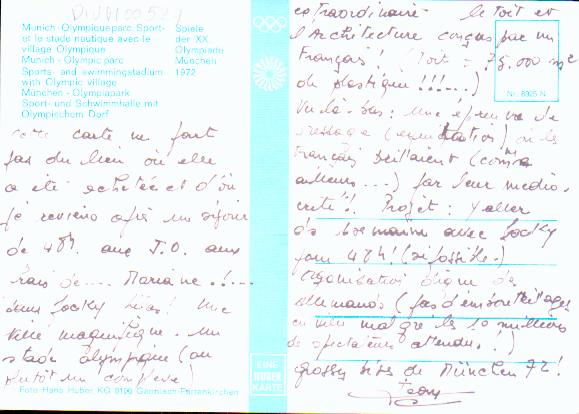 Munich - Olympiqueparc Sport-
et le stade nautique avec le
village Olympique
Munich - Olympic parc
Sports- and swimmingstadium
with Olympic village
München - Olympiapark
Sport- und Schwimmhalle mit
Olympischem Dorf
Spiele
der XX.
Olympiade
München
1972
carte ne
pas du lieu où elle
a été achetée et d'où
je reviens après un séjour
de 48h. aux J.O. aux
frais de.... Marianne!...
Une
ville magnifique. un
stade olympique (ou
plutôt un complexe)
extraordinaire le toit et
l'Architecture conçus par un
Français! (Toit = 75.000 m2
de plastique!!!...)
Vu là-bas: une épreuve de
dressage (équitation) où les
Français brillaient (comme
ailleurs....) par leur médio-
crité!. Projet: y aller
avec
pour 48h! (si possible.)
Organisation digne des
allemands (pas d'embouteillages
malgré les 10 millions
de spectateurs attendus!)
grosses bises de München 72!
Nr. 8925 N
EINE
HUBER
KARTE
Foto Hans Huber KG 8100 Garmisch-Partenkirchen